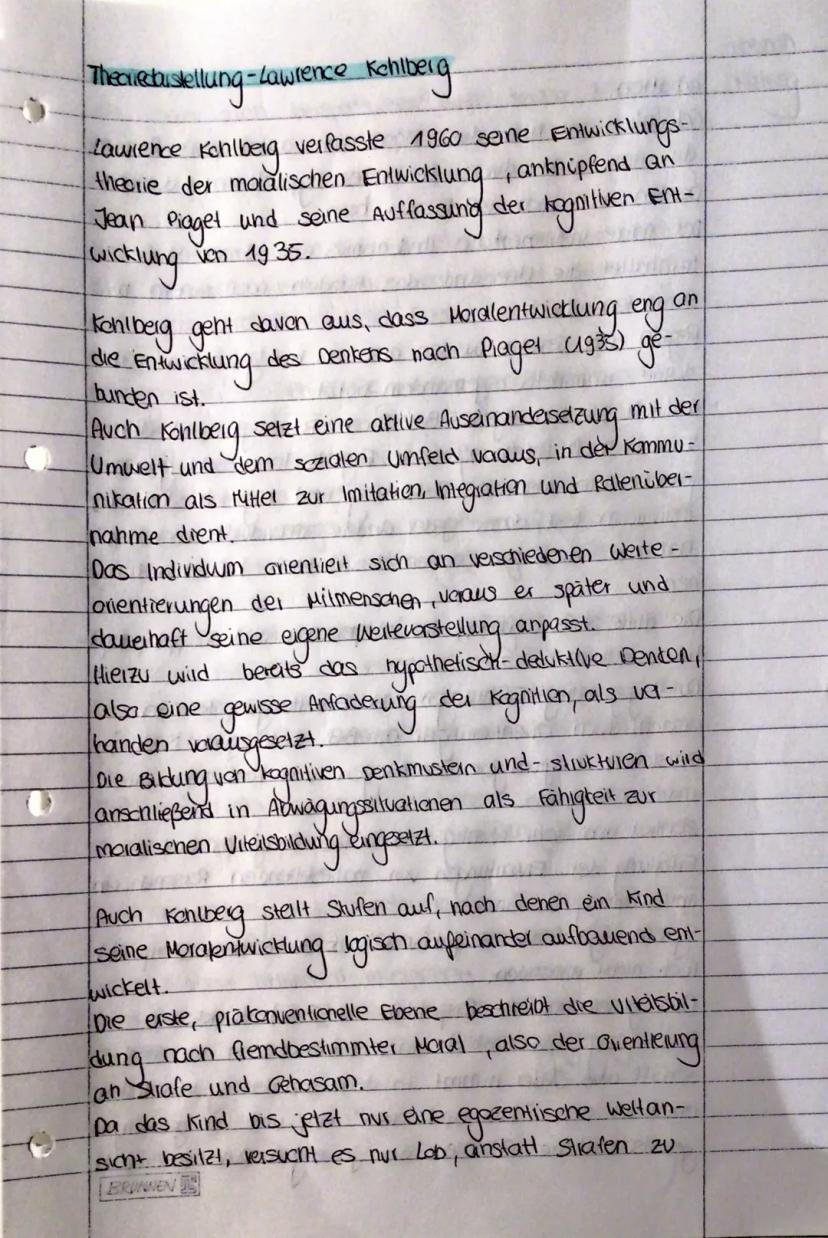 Theoriedarstellung-Lawrence Kohlberg
Lawrence Kohlberg verfasste 1960 seine Entwicklungs-
theorie der moralischen Entwicklung, anknüpfend an
Jean Piaget und seine Auffassung der kognitiven Ent-
wicklung von 1935.
Kohlberg geht davon aus, dass Moralentwicklung eng an
die Entwicklung des Denkens nach Piaget (1935) ge-
bunden ist.
Auch Kohlberg setzt eine aktive Auseinandersetzung mit der
Umwelt und dem sozialen Umfeld voraus, in der Kommu-
nikation als Mittel zur Imitation, Integration und Rollenüber-
nahme dient.
Das Individum orientiert sich an verschiedenen Werte-
orientierungen der Mitmenschen, woraus er später und
dauerhaft seine eigene Wertevorstellung anpasst.
Hierzu wird bereits das hypothetisch-deduktive Denken,
also eine gewisse Anforderung der Kognition, als vor-
handen vorausgesetzt.
Die Bildung von kognitiven Denkmustern und -strukturen wird
anschließend in Abwägungssituationen als Fähigkeit zur
moralischen Urteilsbildung eingesetzt.
Auch Kohlberg stellt Stufen auf, nach denen ein Kind
seine Moralentwicklung logisch aufeinander aufbauend ent-
wickelt.
Die erste, präkonventionelle Ebene beschreibt die Urteilsbil-
dung nach fremdbestimmter Moral, also der Orientierung
an Strafe und Gehorsam.
Da das Kind bis jetzt nur eine egozentrische Weltan-
sicht besitzt, versucht es nur Lob, anstatt Strafen zu
BRUNNEN